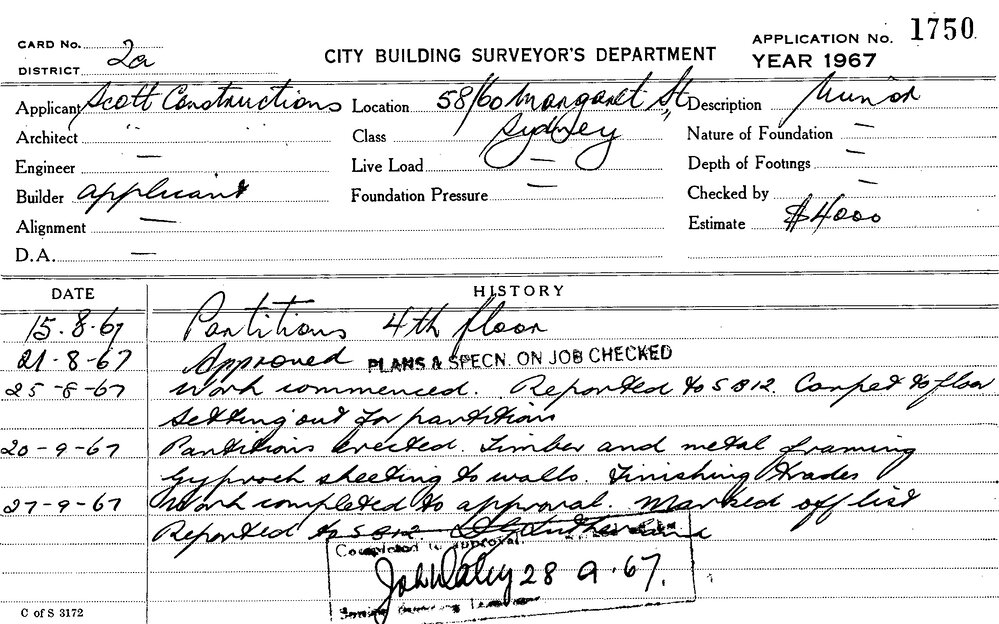 CARD No. 2a
DISTRICT
CITY BUILDING SURVEYOR'S DEPARTMENT
APPLICATION No. 1750
YEAR 1967
Applicant Scott Constructions Location 58/60 Margaret St Sydney Description Minor
Architect " " Class Nature of Foundation —
Engineer — Live Load — Depth of Footings —
Builder applicant Foundation Pressure — Checked by —
Alignment — Estimate $4000
D.A. —
DATE HISTORY
15.8.67 Partitions 4th floor
21-8-67 Approved PLANS & SPECN. ON JOB CHECKED
25-8-67 Work commenced. Reported to S B 12. Carpet to floor
Setting out for partitions
20-9-67 Partitions erected. Timber and metal framing
Gyprock sheeting to walls. Finishing trades
27-9-67 Work completed to approval. Marked off list
Reported to S B 12.
Completed to approval.
28 9.67.
C of S 3172